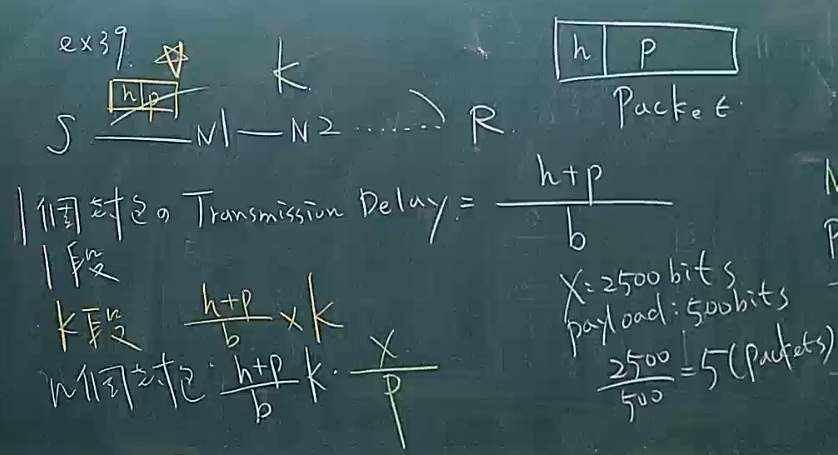 ex39.
h p
k
h p
Packet.
S — N1 — N2 ........ R.
1個封包。Transmission Delay = (h+p)/b
1段
k段 (h+p)/b × k
n個封包 (h+p)/b k · X/P
X: 2500 bits
payload: 500bits
2500/500 = 5 (packets)